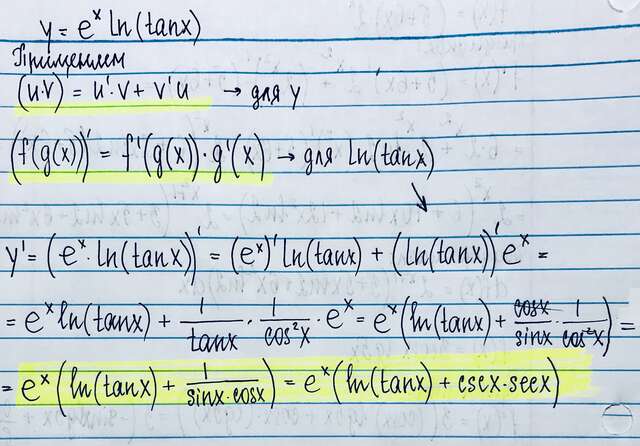 y = eˣ ln(tanx)
Применяем
(u·v) = u'·v + v'u → для y
(f(g(x))' = f'(g(x))·g'(x) → для ln(tanx)
y' = (eˣ·ln(tanx))' = (eˣ)' ln(tanx) + (ln(tanx))' eˣ =
= eˣ ln(tanx) + 1/tanx · 1/cos²x · eˣ = eˣ(ln(tanx) + cosx/sinx · 1/cos²x) =
= eˣ(ln(tanx) + 1/sinx·cosx) = eˣ(ln(tanx) + cscx·secx)